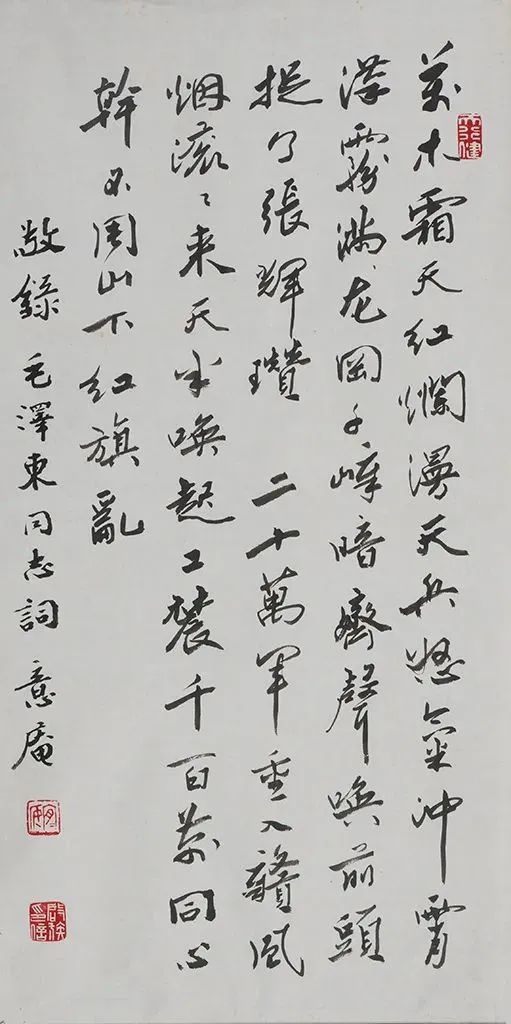 萬木霜天红爛漫天兵怒氣冲霄
漢霧滿龙岡千嶂暗齊聲唤前頭
捉了張輝瓚 二十萬軍重入贛風
烟滚〻来天半唤起工農千百萬同心
幹不周山下红旗亂
敬錄 毛澤東同志詞 意庵